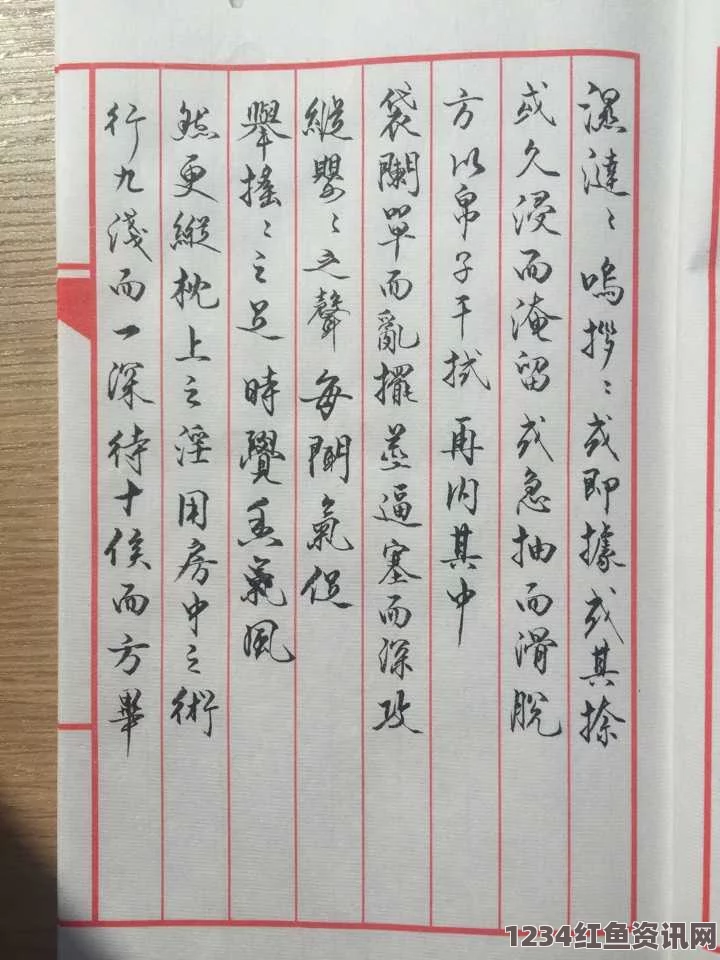 濕澾〻鳴拶〻或即據或其捺
或久浸而淹留或急抽而滑脱
方以帛子干拭再内其中
袋闌單而亂擺莖逼塞而深攻
縱嬰〻之聲每聞氣促
舉搖〻之足時覺香氣風
然更縱枕上之淫用房中之術
行九淺而一深待十候而方畢
1234红鱼资讯网